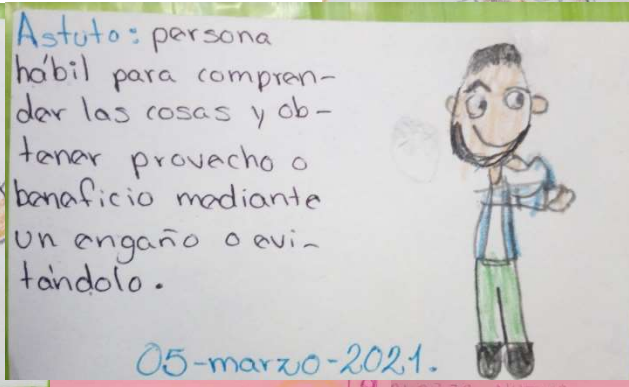 Astuto: persona
hábil para compren-
der las cosas y ob-
tener provecho o
beneficio mediante
un engaño o evi-
tándolo.
05-marzo-2021.